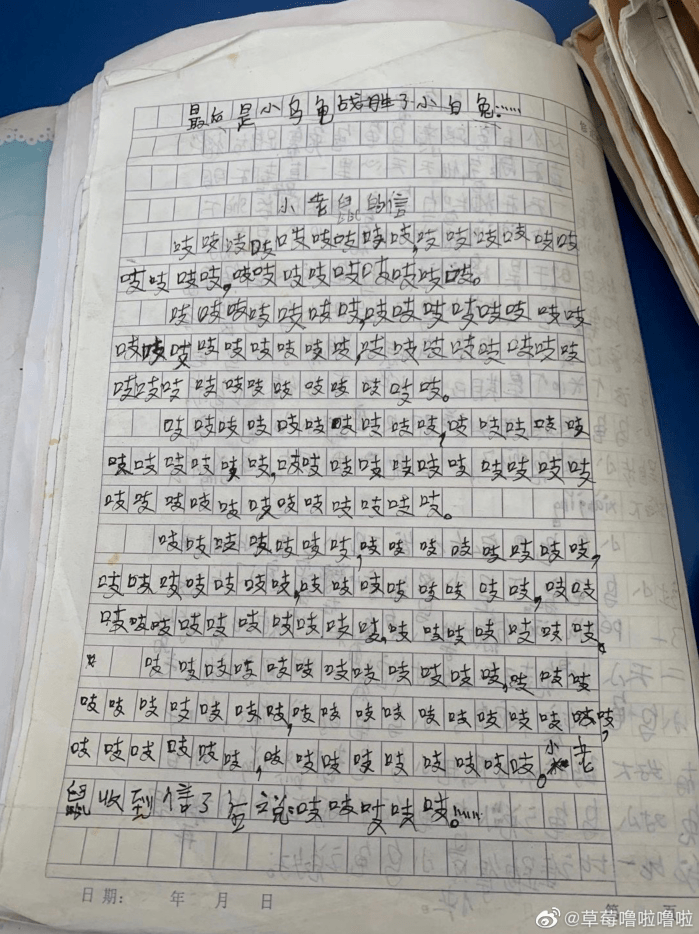 最后是小乌龟战胜了小白兔……
小老鼠的信
吱吱吱吱吱吱吱吱吱,吱吱吱吱吱吱
吱吱吱吱,吱吱吱吱吱吱吱吱吱。
吱吱吱吱吱吱吱,吱吱吱吱吱吱吱吱
吱吱吱吱吱吱吱吱吱,吱吱吱吱吱吱吱吱
吱吱吱吱吱吱吱吱吱吱吱吱。
吱吱吱吱吱吱吱吱吱吱,吱吱吱吱吱
吱吱吱吱吱吱,吱吱吱吱吱吱吱吱吱吱吱
吱吱吱吱吱吱吱吱吱吱吱吱吱。
吱吱吱吱吱吱吱,吱吱吱吱吱吱吱吱,
吱吱吱吱吱吱吱,吱吱吱吱吱吱吱吱,吱吱
吱吱吱吱吱吱吱吱吱吱,吱吱吱吱吱吱吱。
吱吱吱吱吱吱吱吱吱吱吱吱,吱吱吱
吱吱吱吱吱吱吱,吱吱吱吱吱吱吱吱吱吱吱,
吱吱吱吱吱吱,吱吱吱吱吱吱吱吱吱。小老
鼠收到信了 说:吱吱吱吱吱。……
日期: 年 月 日
第 页
@草莓噜啦噜啦